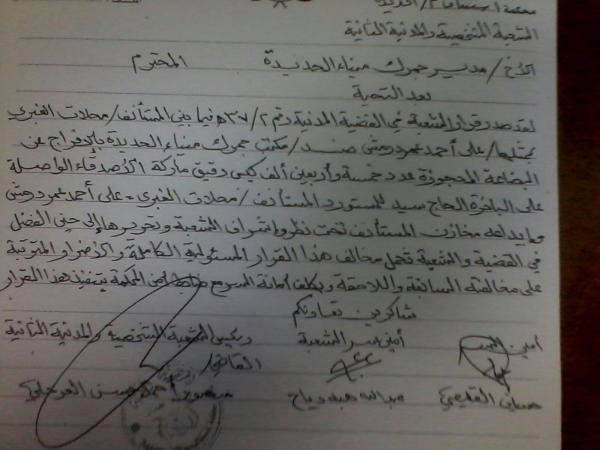 محكمة استئناف م/الحديدة
الشعبة الشخصية والمدنية الثانية
الأخ/مدير جمرك ميناء الحديدة المحترم
بعد التحية
لقد صدر قرار الشعبة في القضية المدنية رقم ٢/ ٣٧هـ فيما بين المستأنف/محلات الغبري
يمثلها/علي أحمد عمود حتى ضد/مكتب جمرك ميناء الحديدة بالإفراج عن
البضاعة المحجوزة عدد خمسة وأربعين ألف كيس دقيق ماركة الأصدقاء الواصلة
على الباخرة الحاج سيد للمستورد المستأنف/محلات الغبري - علي أحمد عمود حتى
وإيداعه مخازن المستأنف تحت نظر وإشراف الشعبة وتحريرها إلى حين الفصل
في القضية والشعبة تحمل مخالف هذا القرار المسئولية الكاملة والأضرار المترتبة
على مخالفته السابقة واللاحقة ويكلف أمانة السر مع ضابط أمن المحكمة بتنفيذ هذا القرار
شاكرين تعاونكم
أمين السر أمين سر الشعبة رئيس الشعبة الشخصية والمدنية الثانية
القاضي/
حسين القديمي عبدالله هبه دباح أحمد حسن